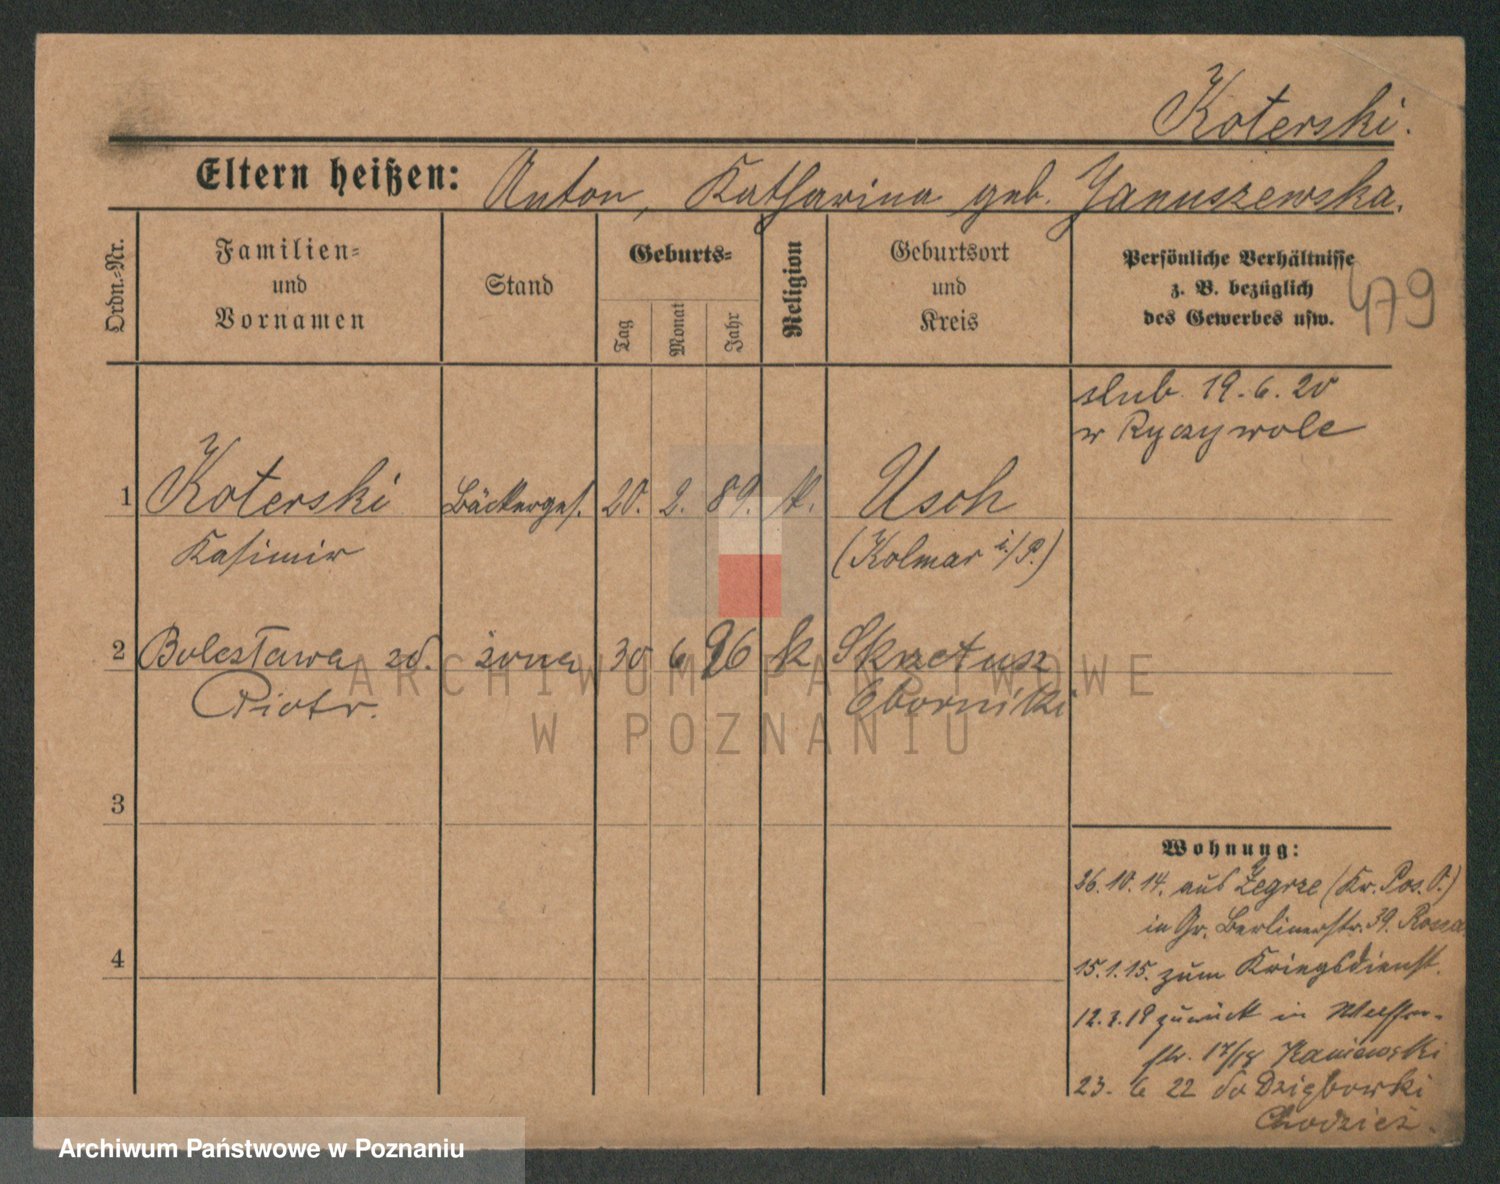 Koterski.
Eltern heißen: Anton, Katharina geb. Januszewska.
Ordn.-Nr.
Familien-
und
Vornamen
Stand
Geburts-
Tag
Monat
Jahr
Religion
Geburtsort
und
Kreis
Persönliche Verhältnisse
z. B. bezüglich
des Gewerbes usw.
479
ślub. 19.6.20
w Ryczywole
1 Koterski Bäckerges. 20. 2. 89. k. Usch
Kasimir (Kolmar i./P.)
2 Bolesława zd. żona 30 6 96 k Skrzetusz
Piotr. Oborniki
3
4
Wohnung:
26.10.14. aus Żegrze (Kr. Pos. O.)
in Gr. Berlinerstr. 39.
15.1.15. zum Kriegsdienst.
12.3.19 zurück in
str. 17/18 Kaniewski
23. 6 22 do
Chodzież.
ARCHIWUM PAŃSTWOWE
W POZNANIU
Archiwum Państwowe w Poznaniu